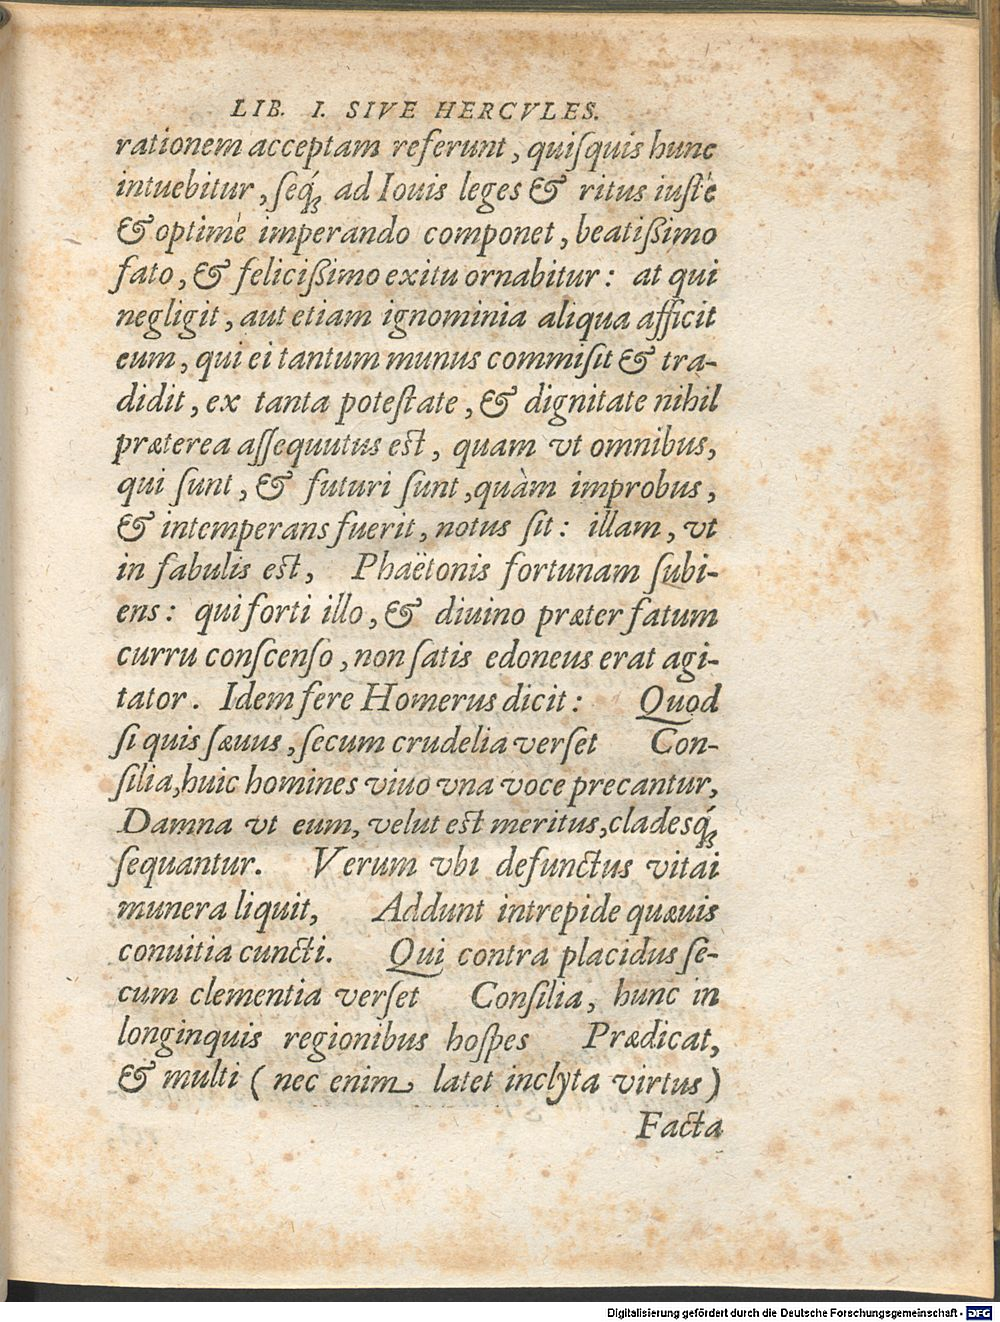 LIB. I. SIVE HERCVLES.
rationem acceptam referunt, quiſquis hunc
intuebitur, ſeq́ꝫ ad Iouis leges & ritus iuſtè
& optimè imperando componet, beatißimo
fato, & felicißimo exitu ornabitur: at qui
negligit, aut etiam ignominia aliqua afficit
eum, qui ei tantum munus commiſit & tra-
didit, ex tanta poteſtate, & dignitate nihil
præterea aſſequutus eſt, quam vt omnibus,
qui ſunt, & futuri ſunt, quàm improbus,
& intemperans fuerit, notus ſit: illam, vt
in fabulis eſt, Phaëtonis fortunam ſubi-
ens: qui forti illo, & diuino præter fatum
curru conſcenſo, non ſatis edoneus erat agi-
tator. Idem fere Homerus dicit: Quod
ſi quis ſæuus, ſecum crudelia verſet Con-
ſilia, huic homines viuo vna voce precantur,
Damna vt eum, velut eſt meritus, cladesq́ꝫ
ſequantur. Verum vbi defunctus vitai
munera liquit, Addunt intrepide quæuis
conuitia cuncti. Qui contra placidus ſe-
cum clementia verſet Conſilia, hunc in
longinquis regionibus hoſpes Prædicat,
& multi (nec enim latet inclyta virtus)
Facta
Digitalisierung gefördert durch die Deutsche Forschungsgemeinschaft - DFG